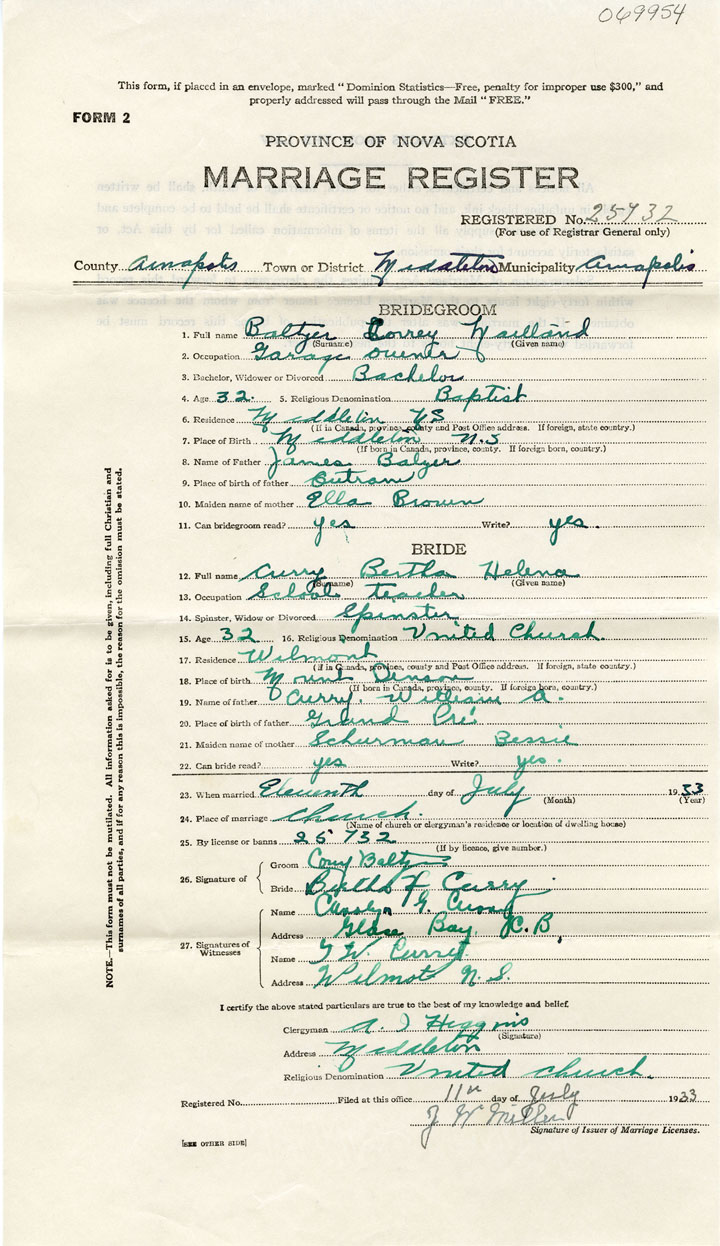 069954
This form, if placed in an envelope, marked "Dominion Statistics—Free, penalty for improper use $300," and
properly addressed will pass through the Mail "FREE."
FORM 2
PROVINCE OF NOVA SCOTIA
MARRIAGE REGISTER
REGISTERED No. 25732
(For use of Registrar General only)
County Annapolis Town or District Middleton Municipality Annapolis
BRIDEGROOM
1. Full name Baltzer Correy Mailland
(Surname) (Given name)
2. Occupation Garage owner
3. Bachelor, Widower or Divorced Bachelor
4. Age 32. 5. Religious Denomination Baptist
6. Residence Middleton NS
(If in Canada, province, county and Post Office address. If foreign, state country.)
7. Place of Birth Middleton N.S
(If born in Canada, province, county. If foreign born, country.)
8. Name of Father James Balzer
9. Place of birth of father Outram
10. Maiden name of mother Ella Brown
11. Can bridegroom read? yes Write? yes.
BRIDE
12. Full name Curry Bertha Helena
(Surname) (Given name)
13. Occupation School teacher
14. Spinster, Widow or Divorced Spinster
15. Age 32 16. Religious Denomination United Church.
17. Residence Wilmont
(if in Canada, province, county and Post Office address. If foreign, state country.)
18. Place of birth Mount Denson
(If born in Canada, province, county. If foreign born, country.)
19. Name of father Curry, William A.
20. Place of birth of father Grand Pré
21. Maiden name of mother Schurman Bessie
22. Can bride read? yes Write? yes.
23. When married Eleventh day of July 1933
(Month) (Year)
24. Place of marriage Church.
(Name of church or clergyman's residence or location of dwelling house)
25. By license or banns 25732
(If by licence, give number.)
26. Signature of Groom Corry Baltzer
Bride Bertha H Curry
27. Signatures of Witnesses Name Carolyn G. Curry
Address Glace Bay, C.B,
Name W. Curry.
Address Wilmot N.S.
I certify the above stated particulars are true to the best of my knowledge and belief.
Clergyman A. J Higgins
(Signature)
Address Middleton
Religious Denomination United church.
Registered No. Filed at this office 11th day of July 1933
J W Miller
Signature of Issuer of Marriage Licenses.
[SEE OTHER SIDE]
NOTE.—This form must not be mutilated. All information asked for is to be given, including full Christian and
surnames of all parties, and if for any reason this is impossible, the reason for the omission must be stated.